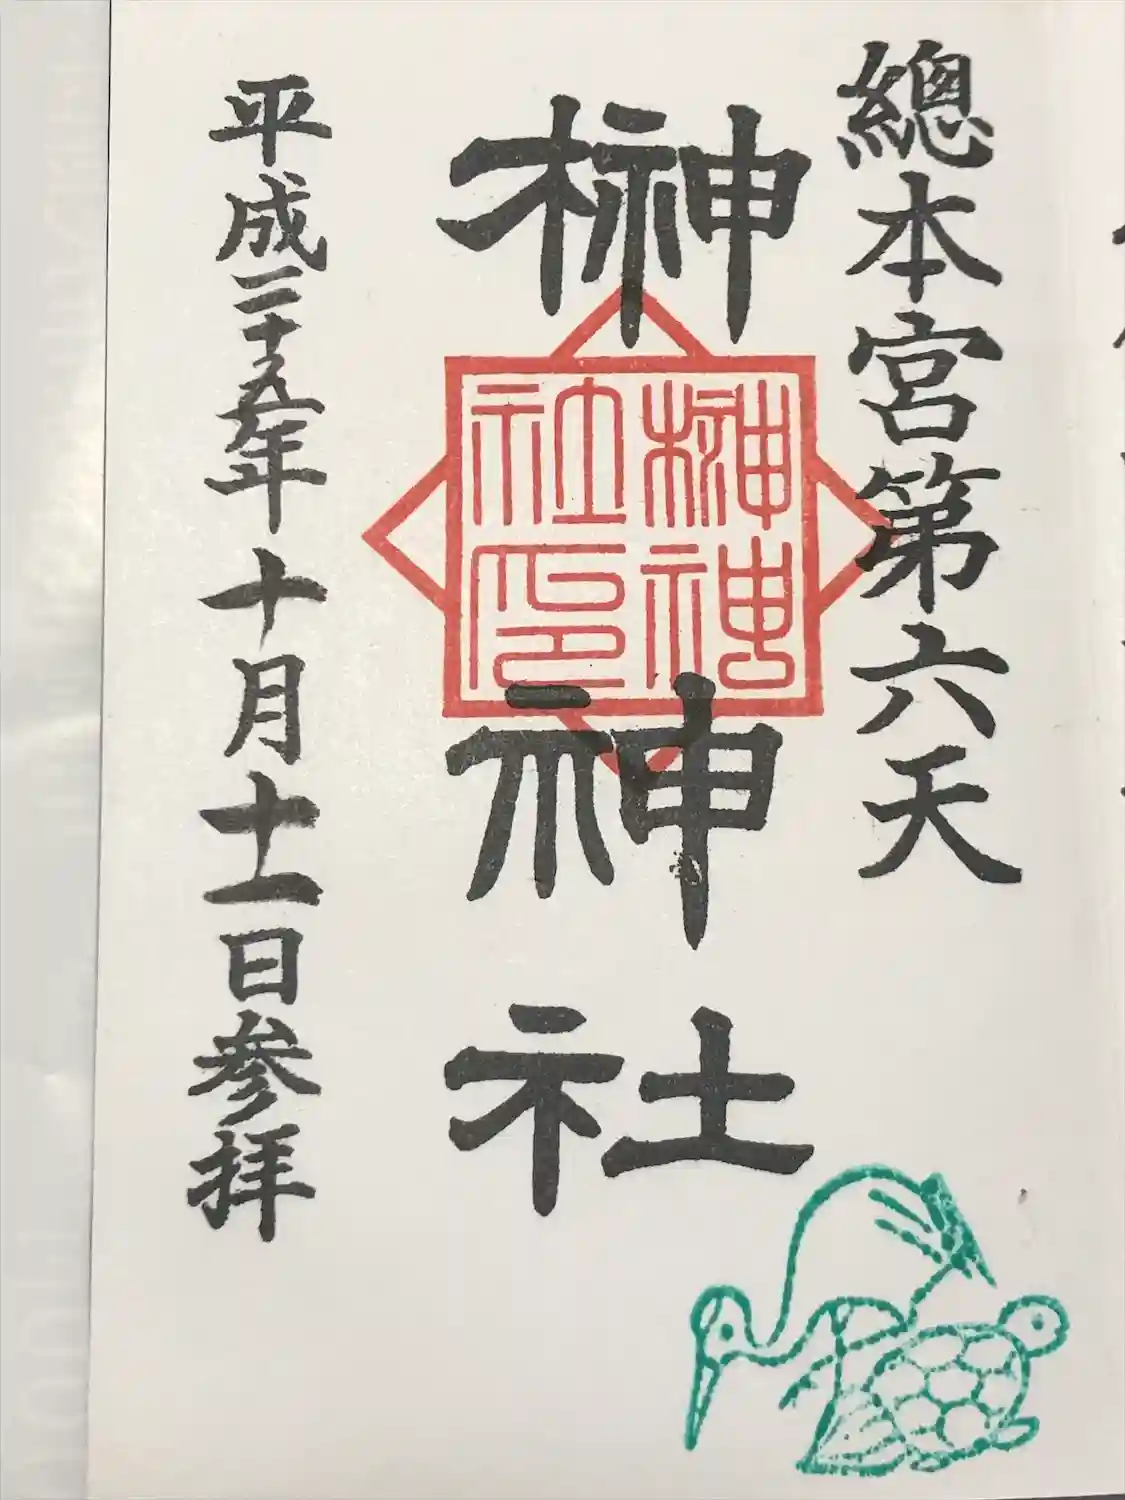 總本宮第六天
榊神社
榊神社印
平成二十九年十月十一日参拝